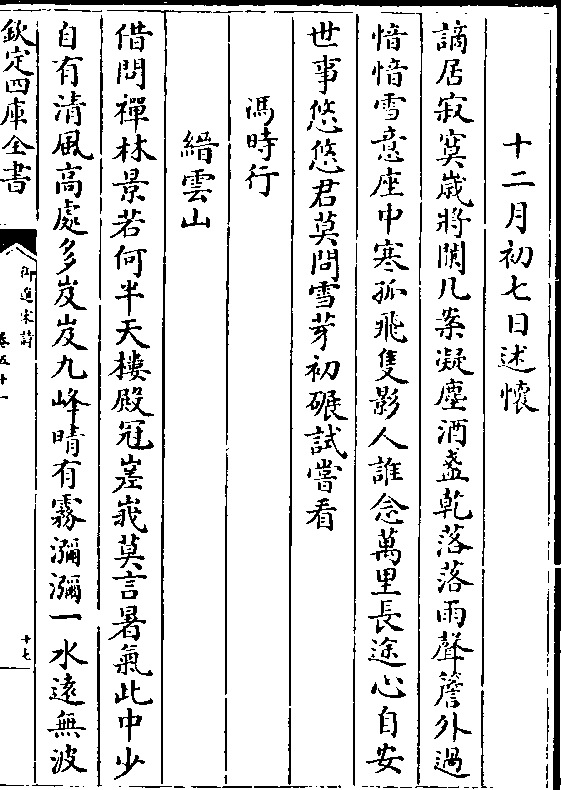 十二月初七日述懷
謫居寂寞歲將闌几案凝塵酒盞乾落落雨聲簷外過
愔愔雪意座中寒孤飛隻影人誰念萬里長途心自安
世事悠悠君莫問雪芽初碾試嘗看
馮時行
縉雲山
借問禪林景若何半天樓殿冠嵳峩莫言暑氣此中少
自有清風高處多岌岌九峰晴有霧瀰瀰一水遠無波
欽定四庫全書
御選宋詩
卷五十一
十七